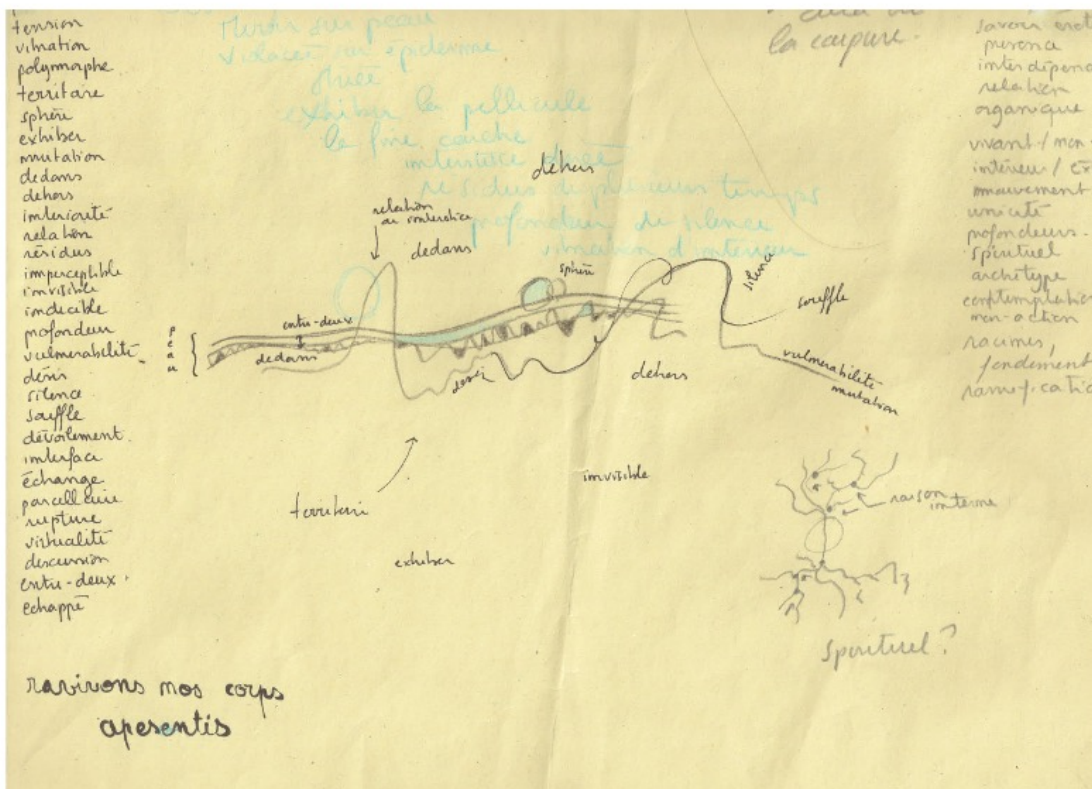 tension
vibration
polymorphe
territoire
sphère
exhiber
mutation
dedans
dehors
interiorité
relation
résidus
imperceptible
invisible
indicible
profondeur
vulnerabilité
silence
souffle
dévoilement
interface
échange
parcellaire
rupture
virtualité
discussion
entre-deux
echappé
sur peau
violacée sur épiderme
exhiber la pellicule
la fine couche
interstice
résidus de plusieurs temps
profondeur de silence
vibration d'intérieur
la carpure.
presence
relation
organique
vivant / non
intérieur / ex
mouvement
unicité
profondeurs.
spirituel
archétype
contemplation
non-action
racines,
fondement
ramification
dehors
relation
ou interstice
dedans
sphère
silence
souffle
entre-deux
peau
dedans
dehors
vulnerabilité
mutation
invisible
territoire
exhiber
raison
interne
spirituel ?
ravivons nos corps
apesentis